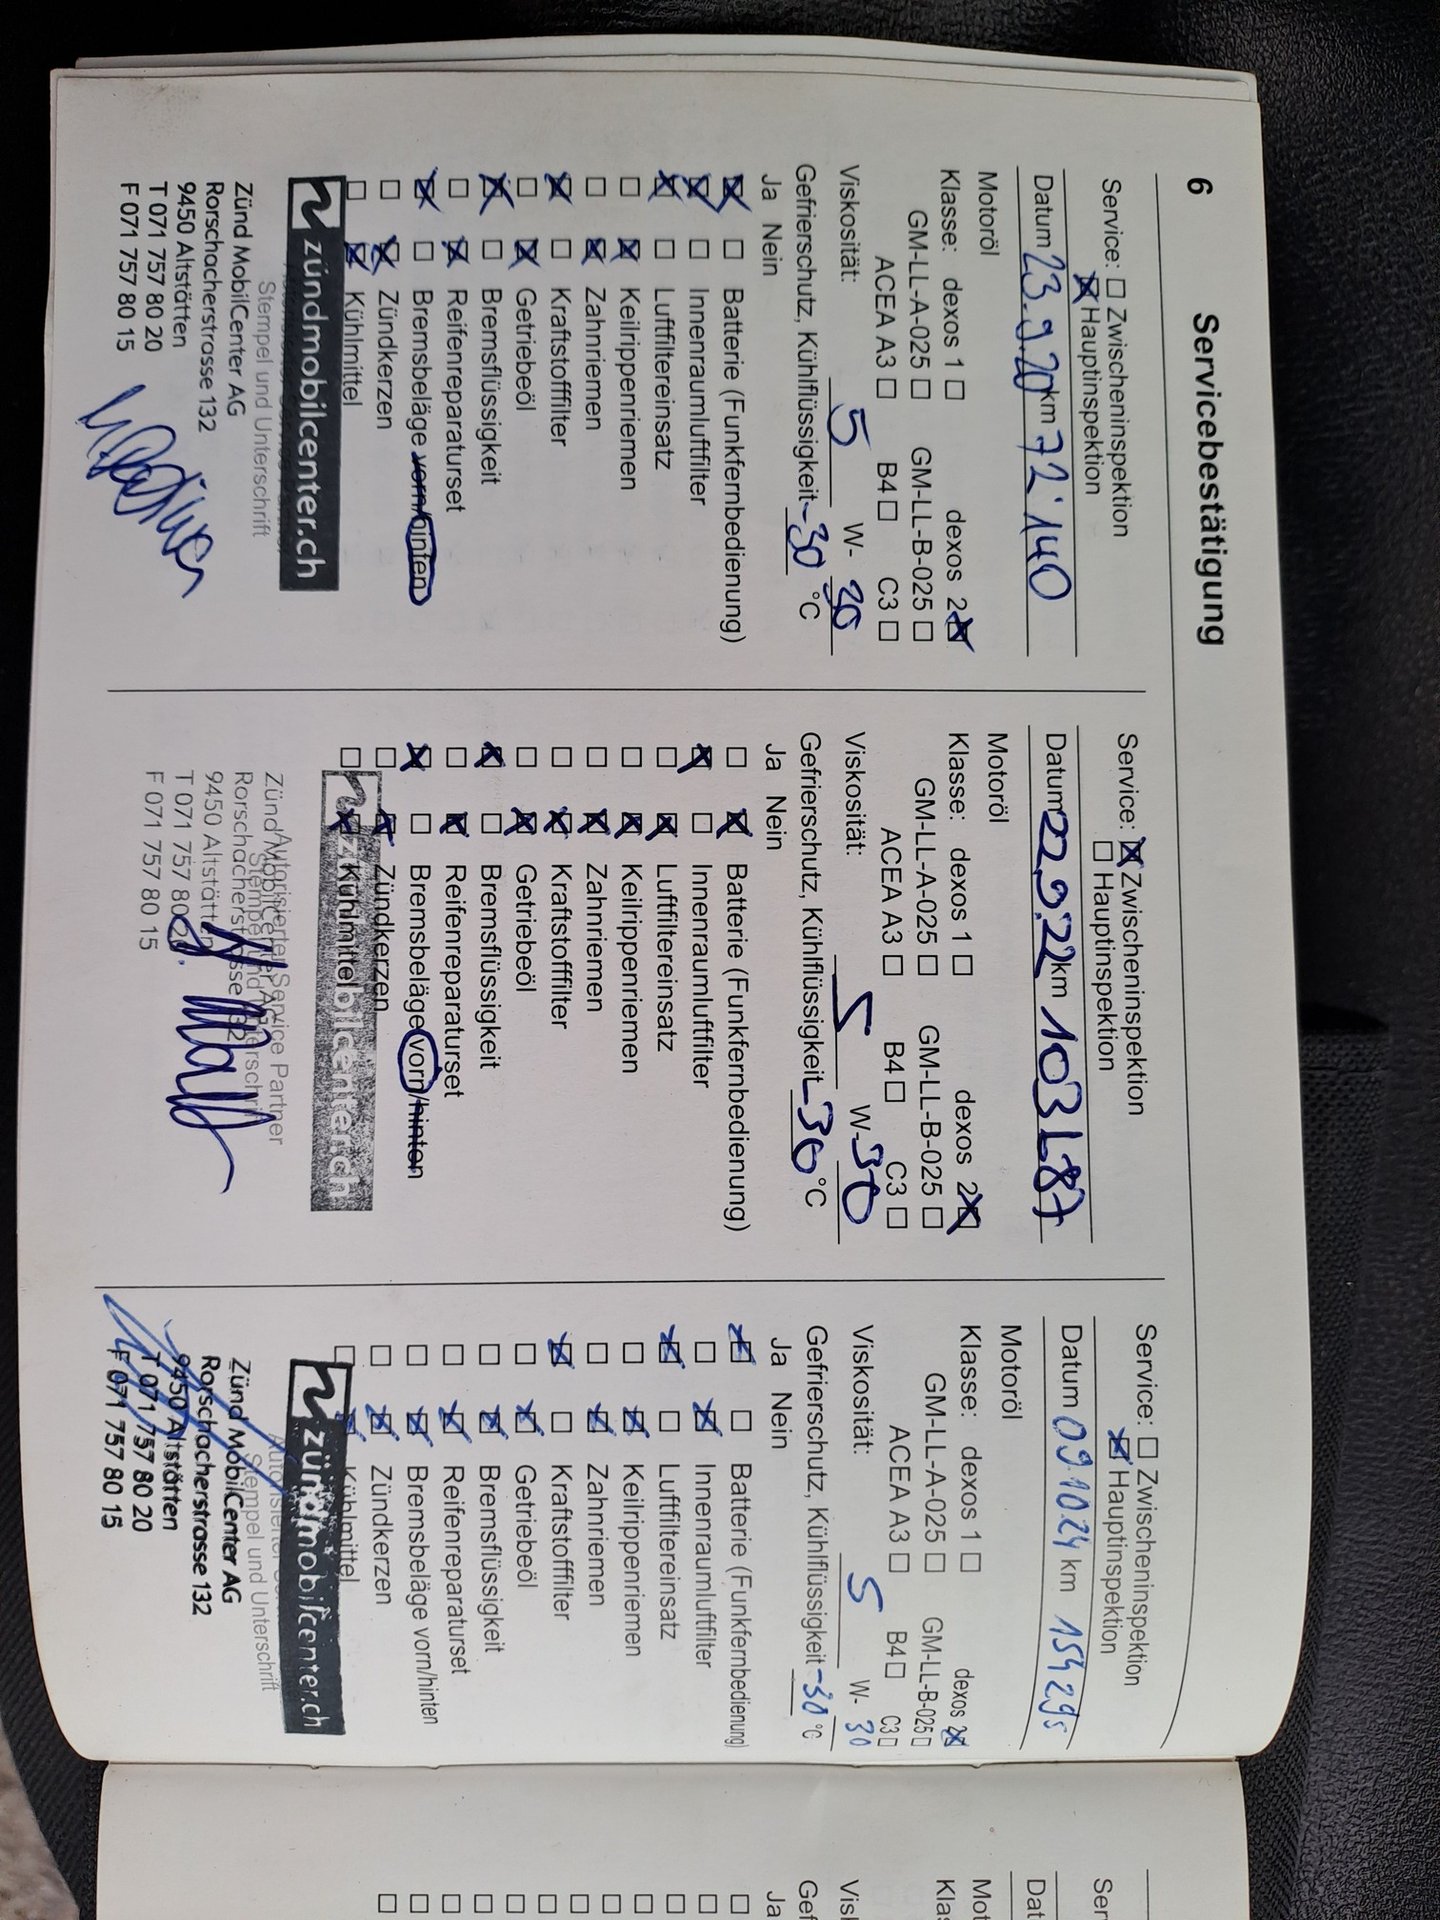 6 Servicebestätigung
Service: ☐ Zwischeninspektion
☒ Hauptinspektion
Datum 23.9.20 km 72'140
Motoröl
Klasse: dexos 1 ☐ dexos 2 ☒
GM-LL-A-025 ☐ GM-LL-B-025 ☐
ACEA A3 ☐ B4 ☐ C3 ☐
Viskosität: 5 W- 30
Gefrierschutz, Kühlflüssigkeit -30 °C
Ja Nein
☒ ☐ Batterie (Funkfernbedienung)
☒ ☐ Innenraumluftfilter
☒ ☐ Luftfiltereinsatz
☐ ☒ Keilrippenriemen
☐ ☒ Zahnriemen
☒ ☐ Kraftstofffilter
☐ ☒ Getriebeöl
☒ ☐ Bremsflüssigkeit
☐ ☒ Reifenreparaturset
☒ ☐ Bremsbeläge vorn/hinten
☐ ☒ Zündkerzen
☐ ☒ Kühlmittel
zündmobilcenter.ch
Stempel und Unterschrift
Zünd MobilCenter AG
Rorschacherstrasse 132
9450 Altstätten
T 071 757 80 20
F 071 757 80 15
Service: ☒ Zwischeninspektion
☐ Hauptinspektion
Datum 22.9.22 km 103487
Motoröl
Klasse: dexos 1 ☐ dexos 2 ☒
GM-LL-A-025 ☐ GM-LL-B-025 ☐
ACEA A3 ☐ B4 ☐ C3 ☐
Viskosität: 5 W- 30
Gefrierschutz, Kühlflüssigkeit -30 °C
Ja Nein
☐ ☒ Batterie (Funkfernbedienung)
☒ ☐ Innenraumluftfilter
☐ ☒ Luftfiltereinsatz
☐ ☒ Keilrippenriemen
☐ ☒ Zahnriemen
☐ ☒ Kraftstofffilter
☐ ☒ Getriebeöl
☒ ☐ Bremsflüssigkeit
☐ ☒ Reifenreparaturset
☒ ☐ Bremsbeläge vorn/hinten
☐ ☒ Zündkerzen
☐ ☒ Kühlmittel
zündmobilcenter.ch
Autorisierter Service Partner
Stempel und Unterschrift
Zünd MobilCenter AG
Rorschacherstrasse 132
9450 Altstätten
T 071 757 80 20
F 071 757 80 15
Service: ☐ Zwischeninspektion
☒ Hauptinspektion
Datum 09.10.24 km 154295
Motoröl
Klasse: dexos 1 ☐ dexos 2 ☒
GM-LL-A-025 ☐ GM-LL-B-025 ☐
ACEA A3 ☐ B4 ☐ C3 ☐
Viskosität: 5 W- 30
Gefrierschutz, Kühlflüssigkeit -30 °C
Ja Nein
☒ ☐ Batterie (Funkfernbedienung)
☐ ☒ Innenraumluftfilter
☒ ☐ Luftfiltereinsatz
☐ ☒ Keilrippenriemen
☐ ☒ Zahnriemen
☒ ☐ Kraftstofffilter
☐ ☒ Getriebeöl
☐ ☒ Bremsflüssigkeit
☐ ☒ Reifenreparaturset
☐ ☒ Bremsbeläge vorn/hinten
☐ ☒ Zündkerzen
☐ ☒ Kühlmittel
zündmobilcenter.ch
Stempel und Unterschrift
Zünd MobilCenter AG
Rorschacherstrasse 132
9450 Altstätten
T 071 757 80 20
F 071 757 80 15
Ser
Dat
Mot
Klas
Visk
Gef
Ja